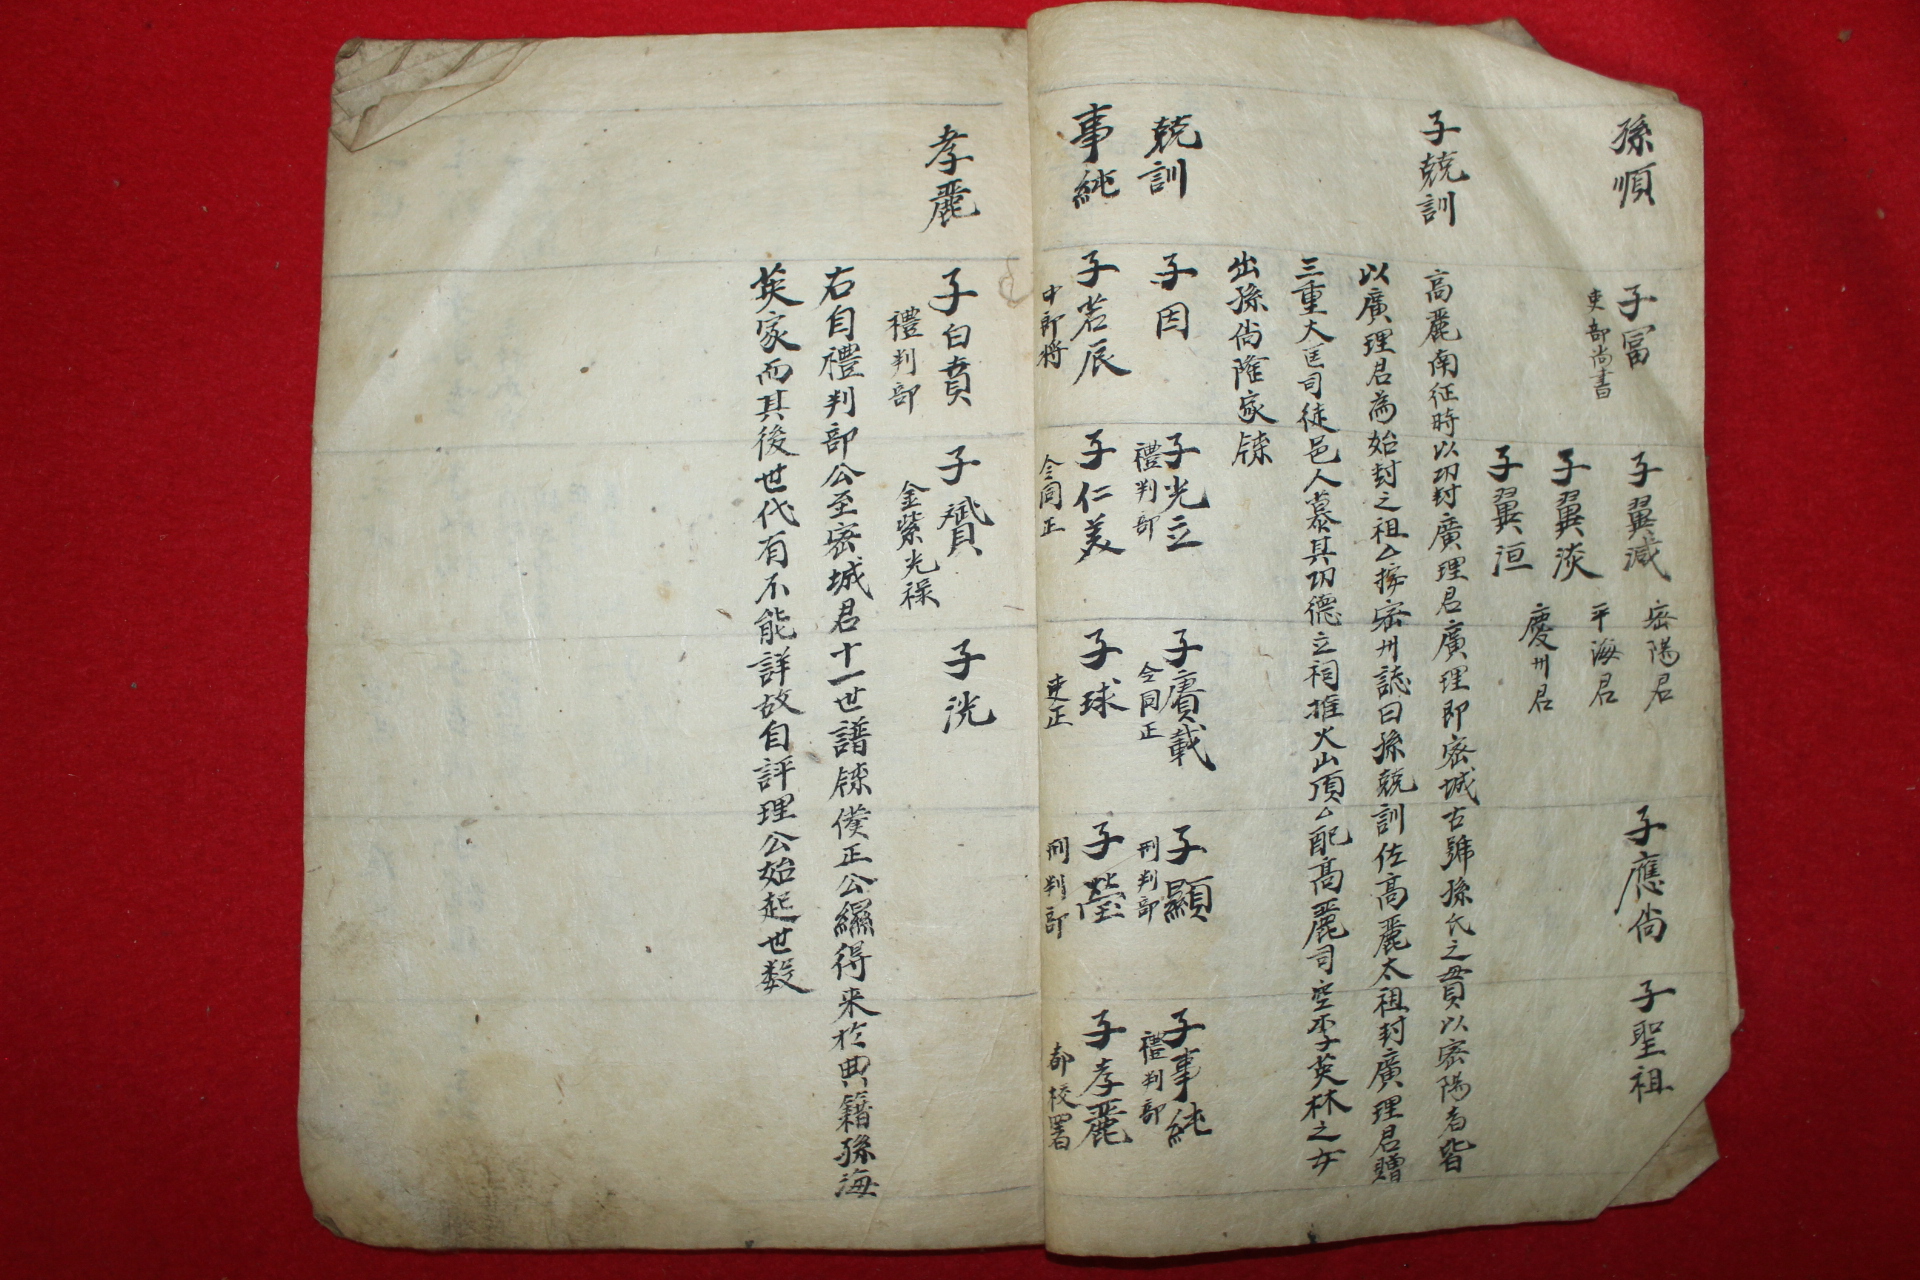 孫順
子冨
吏部尚書
子翼減
密陽君
子翼淡
平海君
子翼洹
慶州君
子應尙
子聖祖
子兢訓
高麗南征時以功封廣理君廣理即密城古號孫氏之貫以密陽者皆
以廣理君為始封之祖△按密州誌曰孫兢訓佐高麗太祖封廣理君贈
三重大匡司徒邑人慕其功德立祠推火山頂△配高麗司空李英林之女
出孫尙隆家錄
兢訓
子因
子光立
禮判部
子賡載
令同正
子顯
刑判部
子事純
禮判部
事純
子若辰
中郎將
子仁美
令同正
子球
吏正
子瑩
刑判部
子孝麗
都校署
孝麗
子白賁
禮判部
子贇
金紫光祿
子洸
右自禮判部公至密城君十一世譜錄僕正公纔得來於典籍孫海
英家而其後世代有不能詳故自評理公始起世数